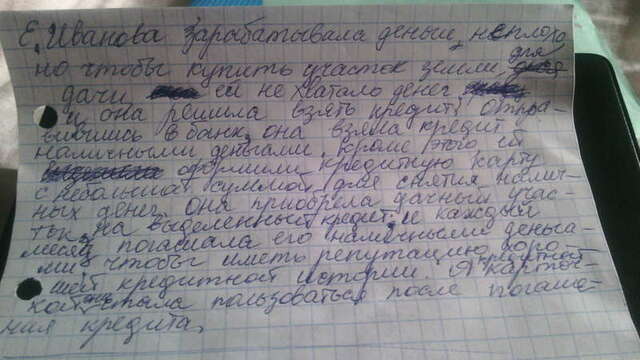 Е. Иванова зарабатывала деньги неплохо
но чтобы купить участок земли для
дачи ей не хватало денег
и она решила взять кредит. Отпра-
вившись в банк, она взяла кредит
наличными деньгами. Кроме этого ей
оформили кредитную карту
с небольшой суммой для снятия налич-
ных денег она приобрела дачный учас-
ток на выделенный кредит и каждый
месяц погашала его наличными деньга-
ми чтобы иметь репутацию хоро-
шей кредитной истории. А кредитной карточ-
кой она стала пользоваться после погаше-
ния кредита.